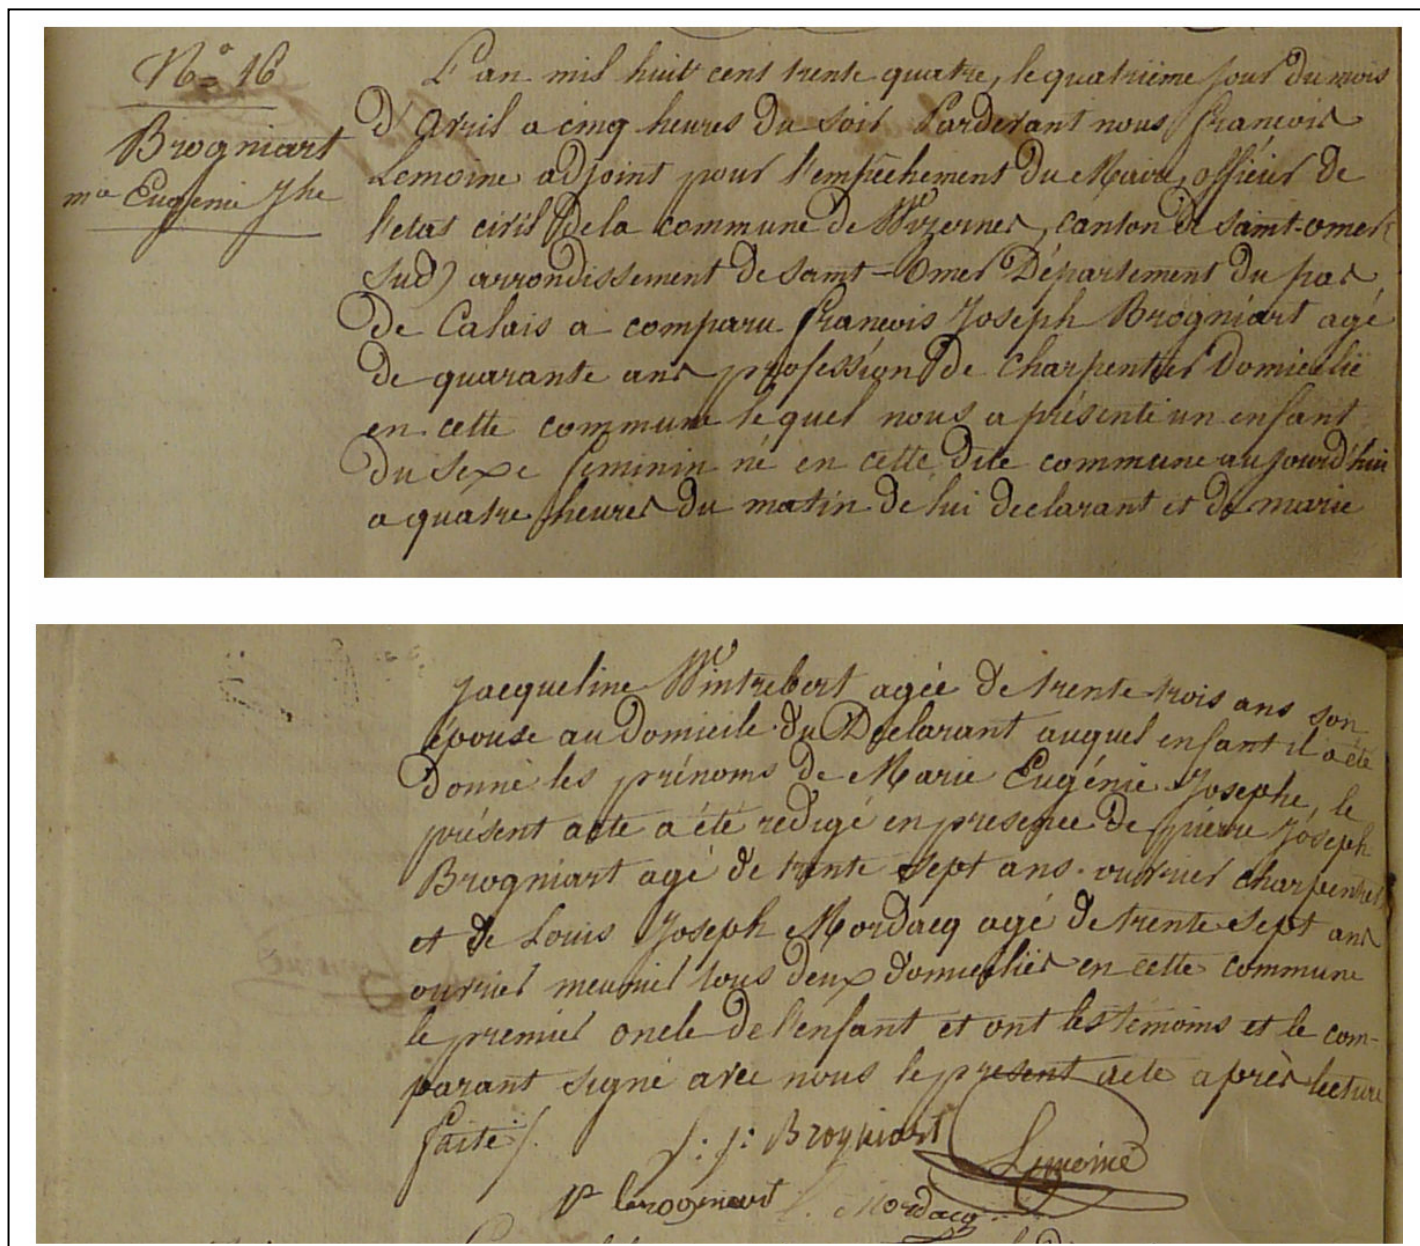 No 16
Brogniart
mie Eugenie Jhe
L'an mil huit cent trente quatre, le quatrième jour du mois
d'avril a cinq heures du soir Pardevant nous françois
Lemoine adjoint pour l'empêchement du Maire, officier de
l'etat civil de la commune de Wizernes, canton de saint-omer (
sud) arrondissement de saint-Omer Département du pas
de Calais a comparu françois Joseph Brogniart agé
de quarante ans profession de charpentier Domicilié
en cette commune lequel nous a présenté un enfant
du sexe feminin né en cette dite commune aujourd'hui
a quatre heures du matin de lui declarant et de marie
Jacqueline Wintrebert agée de trente trois ans son
épouse au Domicile du Declarant auquel enfant il a été
donné les prénoms de Marie Eugénie Josephe, le
présent acte a été redigé en presence de pierre Joseph
Brogniart agé de trente sept ans ouvrier charpentier
et de Louis Joseph Mordacq agé de trente sept ans
ouvrier meunier tous deux domiciliés en cette commune
le premier oncle de l'enfant et ont les témoins et le com-
parant signé avec nous le present acte après lecture
faite /.
f. j. Brogniart Lemoine
pr brogniart l. Mordacq